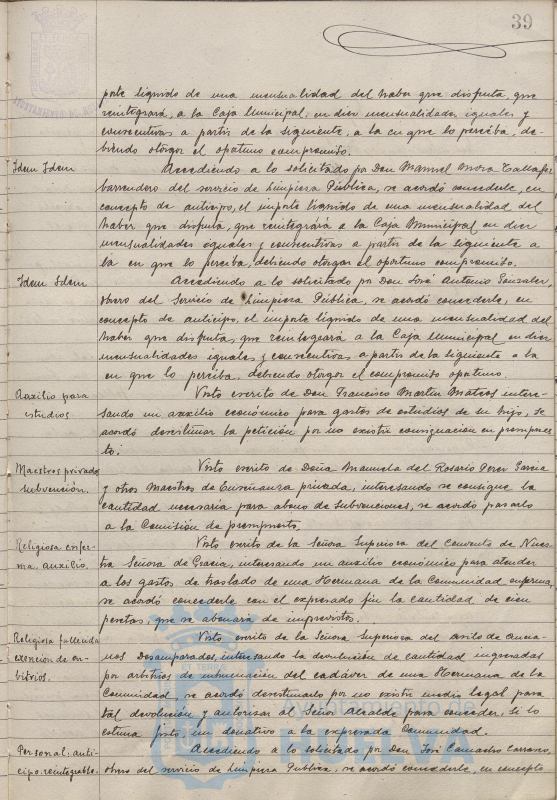 39
porte líquido de una mensualidad del haber que disfruta, que
reintegrará, a la Caja Municipal, en diez mensualidades iguales y
consecutivas a partir de la siguiente, a la en que lo perciba, de-
biendo otorgar el oportuno compromiso.
Idem Idem
Accediendo a lo solicitado por Don Manuel Mora
barrendero del servicio de Limpieza Pública, se acordó concederle, en
concepto de anticipo, el importe líquido de una mensualidad del
haber que disfruta, que reintegrará a la Caja Municipal en diez
mensualidades iguales y consecutivas a partir de la siguiente a
la en que lo perciba, debiendo otorgar el oportuno compromiso.
Idem Idem
Accediendo a lo solicitado por Don José Antonio Gonzalez,
obrero del Servicio de Limpieza Pública, se acordó concederle, en
concepto de anticipo, el importe líquido de una mensualidad del
haber que disfruta, que reintegrará a la Caja Municipal en diez
mensualidades iguales y consecutivas a partir de la siguiente a la
en que lo perciba, debiendo otorgar el compromiso oportuno.
Auxilio para
estudios
Visto escrito de Don Francisco Martin Mateos intere-
sando un auxilio económico para gastos de estudios de su hijo, se
acordó desestimar la petición por no existir consignación en presupues-
to.
Maestros privados
subvención.
Visto escrito de Doña Manuela del Rosario Perez Garcia
y otros Maestros de Enseñanza privada, interesando se consigne la
cantidad necesaria para abono de subvenciones, se acordó pasarlo
a la Comisión de presupuesto.
Religiosa enfer-
ma, auxilio.
Visto escrito de la Señora Superiora del Convento de Nues-
tra Señora de Gracia, interesando un auxilio económico para atender
a los gastos de traslado de una Hermana de la Comunidad enferma,
se acordó concederle con el expresado fin la cantidad de cien
pesetas, que se abonará de imprevistos.
Religiosa fallecida
exención de ar-
bitrios.
Visto escrito de la Señora Superiora del asilo de ancia-
nos Desamparados, interesando la devolución de cantidad ingresadas
por arbitrios de inhumación del cadáver de una Hermana de la
Comunidad se acordó desestimarlo por no existir medio legal para
tal devolución y autorizar al Señor Alcalde para conceder, si lo
estima justo, un donativo a la expresada Comunidad.
Personal: anti-
cipo reintegrable.
Accediendo a lo solicitado por Don José Camacho Carrasco,
obrero del servicio de Limpieza Pública, se acordó concederle, en concepto